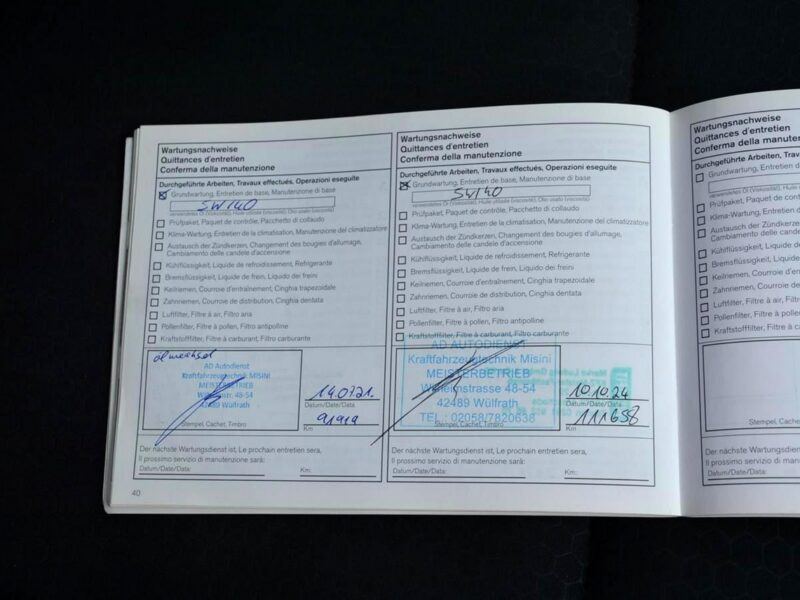 Wartungsnachweise
Quittances d'entretien
Conferma della manutenzione
Durchgeführte Arbeiten, Travaux effectués, Operazioni eseguite
Grundwartung, Entretien de base, Manutenzione di base
5W140
verwendetes Öl (Viskosität), Huile utilisée (viscosité), Olio usato (viscosità)
Prüfpaket, Paquet de contrôle, Pacchetto di collaudo
Klima-Wartung, Entretien de la climatisation, Manutenzione del climatizzatore
Austausch der Zündkerzen, Changement des bougies d'allumage,
Cambiamento delle candele d'accensione
Kühlflüssigkeit, Liquide de refroidissement, Refrigerante
Bremsflüssigkeit, Liquide de frein, Liquido dei freini
Keilriemen, Courroie d'entraînement, Cinghia trapezoidale
Zahnriemen, Courroie de distribution, Cinghia dentata
Luftfilter, Filtre à air, Filtro aria
Pollenfilter, Filtre à pollen, Filtro antipolline
Kraftstofffilter, Filtre à carburant, Filtro carburante
Ölwechsel
AD Autodienst
Kraftfahrzeugtechnik MISINI
MEISTERBETRIEB
Wilhelmstr. 48-54
42489 Wülfrath
14.07.21.
Datum/Date/Data
91919
Stempel, Cachet, Timbro
Km
Der nächste Wartungsdienst ist, Le prochain entretien sera,
Il prossimo servizio di manutenzione sarà:
Datum/Date/Data:
Km:
40
Wartungsnachweise
Quittances d'entretien
Conferma della manutenzione
Durchgeführte Arbeiten, Travaux effectués, Operazioni eseguite
Grundwartung, Entretien de base, Manutenzione di base
5W140
verwendetes Öl (Viskosität), Huile utilisée (viscosité), Olio usato (viscosità)
Prüfpaket, Paquet de contrôle, Pacchetto di collaudo
Klima-Wartung, Entretien de la climatisation, Manutenzione del climatizzatore
Austausch der Zündkerzen, Changement des bougies d'allumage,
Cambiamento delle candele d'accensione
Kühlflüssigkeit, Liquide de refroidissement, Refrigerante
Bremsflüssigkeit, Liquide de frein, Liquido dei freini
Keilriemen, Courroie d'entraînement, Cinghia trapezoidale
Zahnriemen, Courroie de distribution, Cinghia dentata
Luftfilter, Filtre à air, Filtro aria
Pollenfilter, Filtre à pollen, Filtro antipolline
Kraftstofffilter, Filtre à carburant, Filtro carburante
AD AUTODIENST
Kraftfahrzeugtechnik Misini
MEISTERBETRIEB
Wilhelmstrasse 48-54
42489 Wülfrath
TEL.: 02058/7820638
10.10.24
Datum/Date/Data
111658
Stempel, Cachet, Timbro
Km
Der nächste Wartungsdienst ist, Le prochain entretien sera,
Il prossimo servizio di manutenzione sarà:
Datum/Date/Data:
Km:
Wartungsnachweise
Quittances d'entretien
Conferma della manutenzione
Durchgeführte Arbeiten, Trava
Grundwartung, Entretien
verwendetes Öl (Viskosität), Huile
Prüfpaket, Paquet de
Klima-Wartung, Entretien
Austausch der Zündke
Cambiamento delle can
Kühlflüssigkeit, Liquide
Bremsflüssigkeit, Liqu
Keilriemen, Courroie d
Zahnriemen, Courroie
Luftfilter, Filtre à air, F
Pollenfilter, Filtre à pol
Kraftstofffilter, Filtre à
Stempel, Ca
Der nächste Wartungsdie
Il prossimo servizio di ma
Datum/Date/Data: